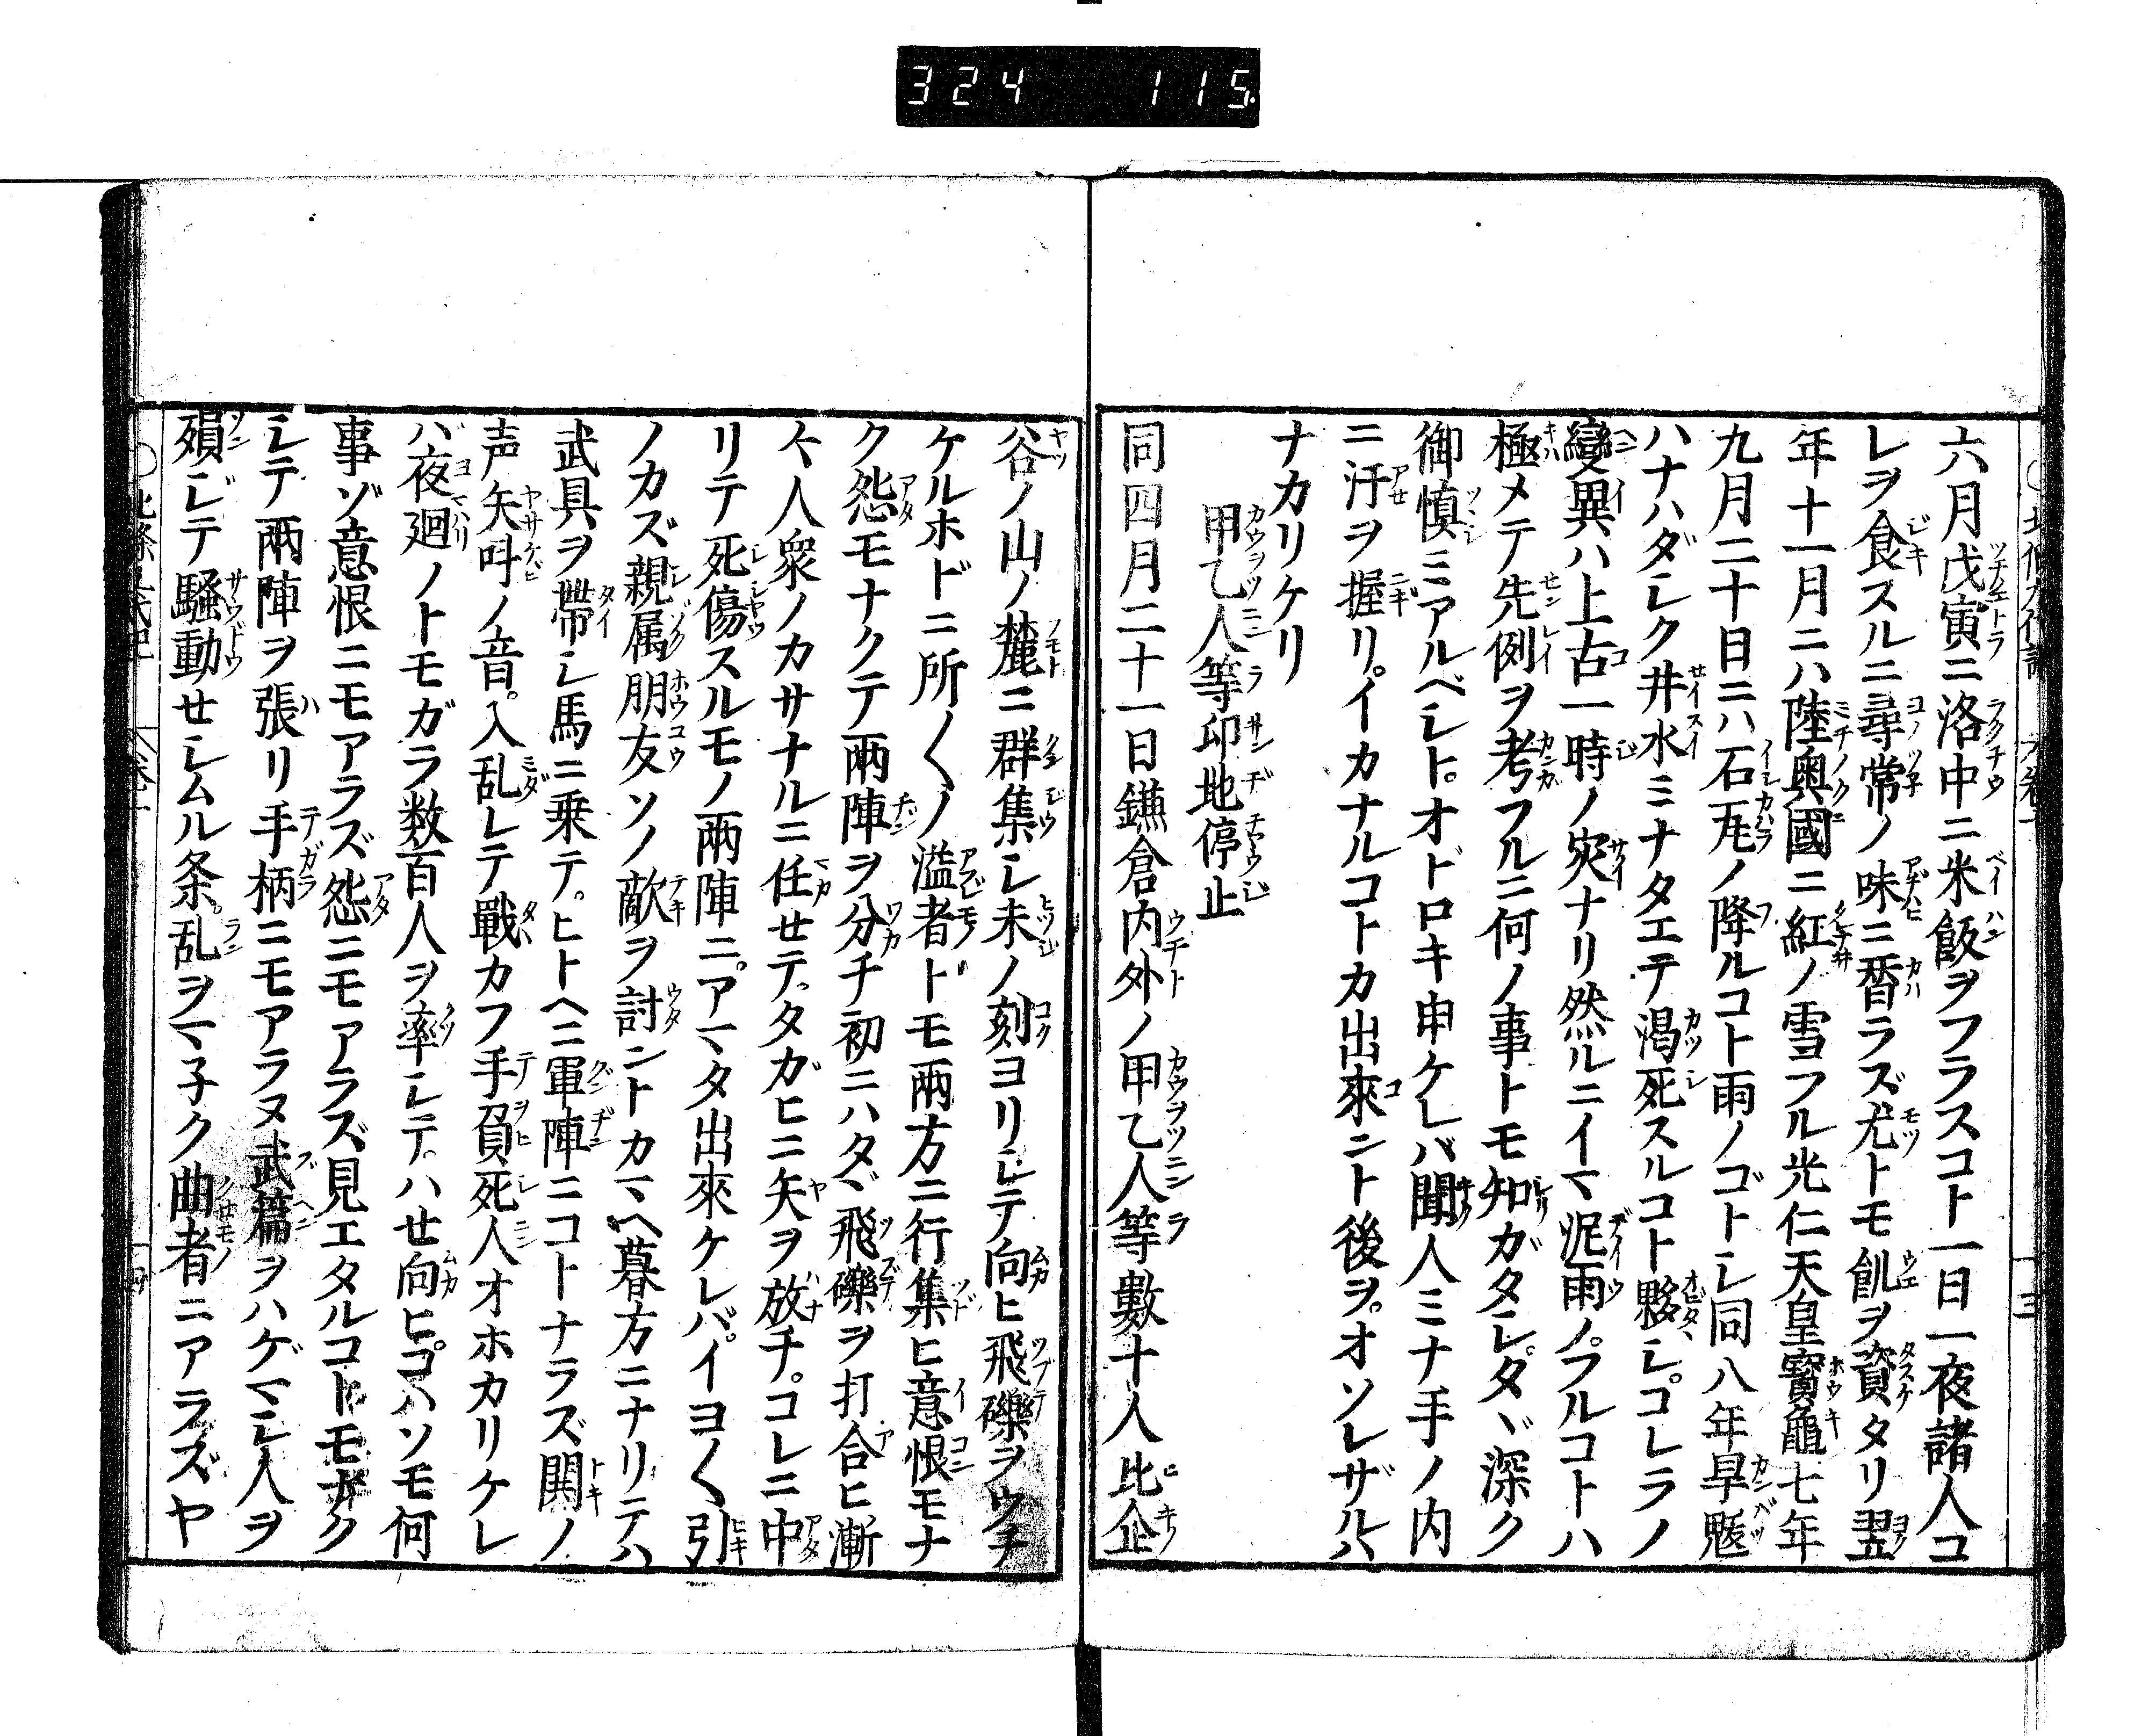 324 115
六月戊寅ニ洛中ニ米飯ヲフラスコト一日一夜諸人コ
レヲ食スルニ尋常ノ味ニ替ラズ尤トモ飢ヲ資タリ翌
年十一月ニハ陸奥國ニ紅ノ雪フル光仁天皇寳龜七年
九月二十日ニハ石瓦ノ降ルコト雨ノゴトレ同八年旱魃
ハナハダレク井水ミナタエテ渇死スルコト夥レ。コレラノ
變異ハ上古一時ノ災ナリ然ルニイマ泥雨ノフルコトハ
極メテ先例ヲ考フルニ何ノ事トモ知ガタレ。タヾ深ク
御慎ミアルベレト。オドロキ申ケレバ聞人ミナ手ノ内
ニ汗ヲ握リ。イカナルコトカ出來ント後ヲ。オソレザルハ
ナカリケリ
甲乙人等印地停止
同四月二十一日鎌倉内外ノ甲乙人等數十人比企
谷ノ山ノ麓ニ群集レ未ノ刻ヨリレテ向ヒ飛礫ヲウチ
ケルホドニ所〱ノ溢者ドモ兩方ニ行集ヒ意恨モナ
ク怨モナクテ兩陣ヲ分チ初ニハタヾ飛礫ヲ打合ヒ漸
々人衆ノカサナルニ任せテ。タガヒニ矢ヲ放チ。コレニ中
リテ死傷スルモノ兩陣ニ。アマタ出來ケレバ。イヨ〱引
ノカズ親属朋友ソノ敵ヲ討ントカマヘ暮方ニナリテハ
武具ヲ帶レ馬ニ乗テ。ヒトヘニ軍陣ニコトナラズ鬨ノ
声矢叫ノ音。入乱レテ戰カフ手負死人オホカリケレ
バ夜廻ノトモガラ数百人ヲ率レテ。ハせ向ヒ。コハソモ何
事ゾ意恨ニモアラズ怨ニモアラズ見エタルコトモナク
レテ兩陣ヲ張リ手柄ニモアラヌ武篇ヲハゲマレ人ヲ
殞レテ騒動せレムル条。乱ヲマ子ク曲者ニアラズヤ